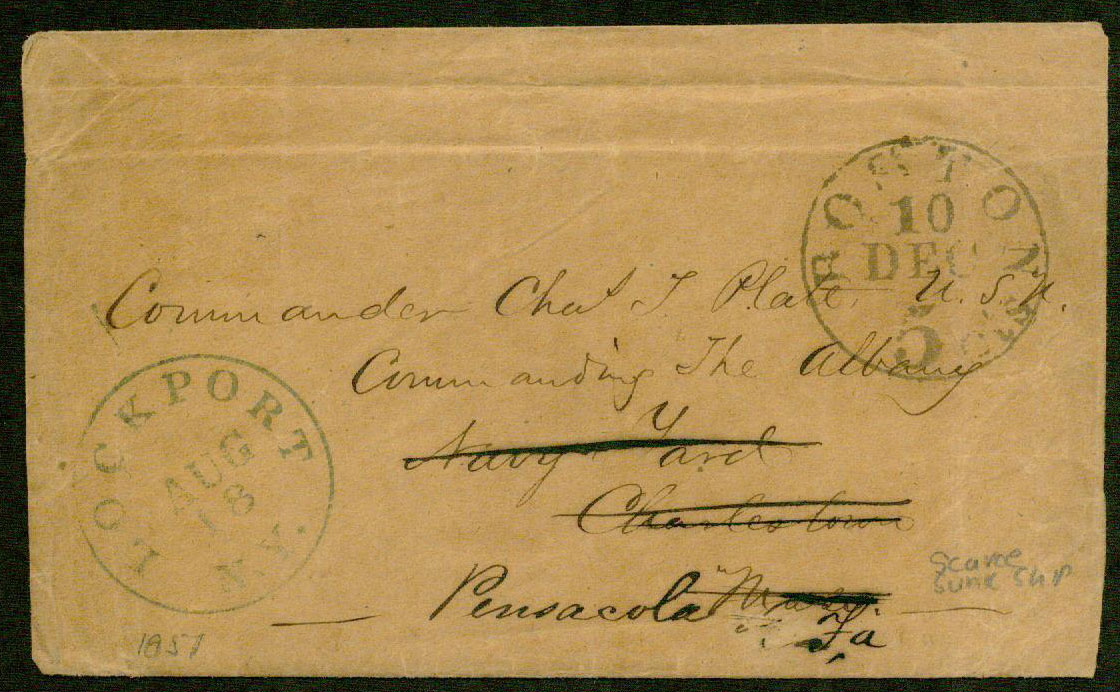 BOSTON
10
DEC
5 cts
Commander Chas T. Platt U.S.N.
Commanding The Albany
Navy Yard
Charlestown
Pensacola Mass.
Fa
LOCKPORT N.Y.
AUG
8
1851
Scarce
Sunk Ship